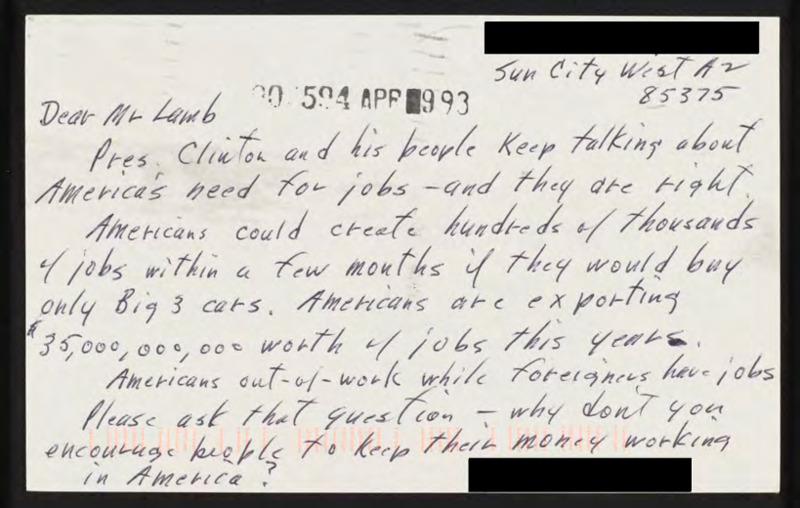 Sun City West AZ
85375
594 APR 993
Dear Mr Lamb
Pres. Clinton and his people keep talking about
America's need for jobs - and they are right.
Americans could create hundreds of thousands
of jobs within a few months if they would buy
only Big 3 cars. Americans are exporting
$35,000,000,000 worth of jobs this years.
Americans out-of-work while foreigners have jobs
Please ask that question - why don't you
encourage people to keep their money working
in America?